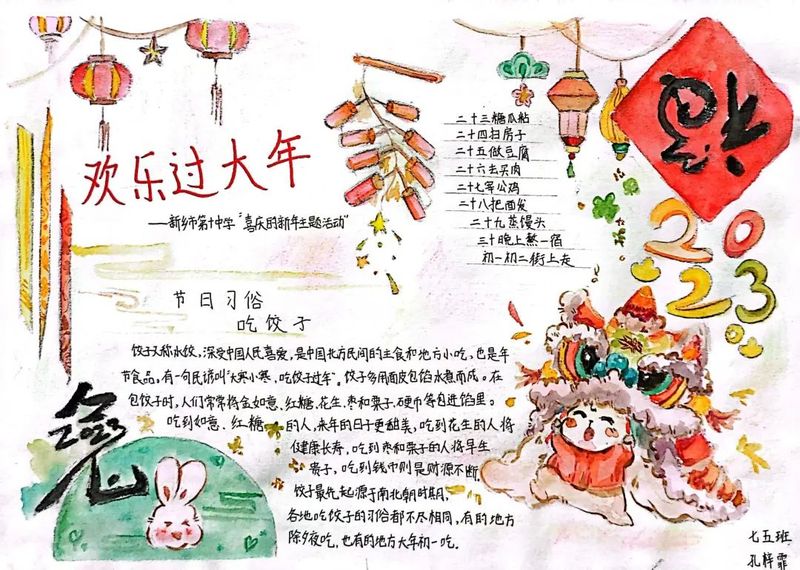 欢乐过大年
——新乡市第十中学“喜庆的新年主题活动”
二十三糖瓜粘
二十四扫房子
二十五做豆腐
二十六去买肉
二十七宰公鸡
二十八把面发
二十九蒸馒头
三十晚上熬一宿
初一初二街上走
福
2023
节日习俗
吃饺子
饺子又称水饺，深受中国人民喜爱，是中国北方民间的主食和地方小吃，也是年
节食品。有一句民谚叫“大寒小寒，吃饺子过年”。饺子多用面皮包馅水煮而成。在
包饺子时，人们常常将金如意、红糖、花生、枣和栗子、硬币等包进馅里。
吃到如意、红糖的人，来年的日子更甜美，吃到花生的人将
健康长寿，吃到枣和栗子的人将早生
贵子，吃到钱币则是财源不断
饺子最先起源于南北朝时期，
各地吃饺子的习俗都不尽相同，有的地方
除夕夜吃，也有的地方大年初一吃。
2023
兔
七五班
孔梓霏